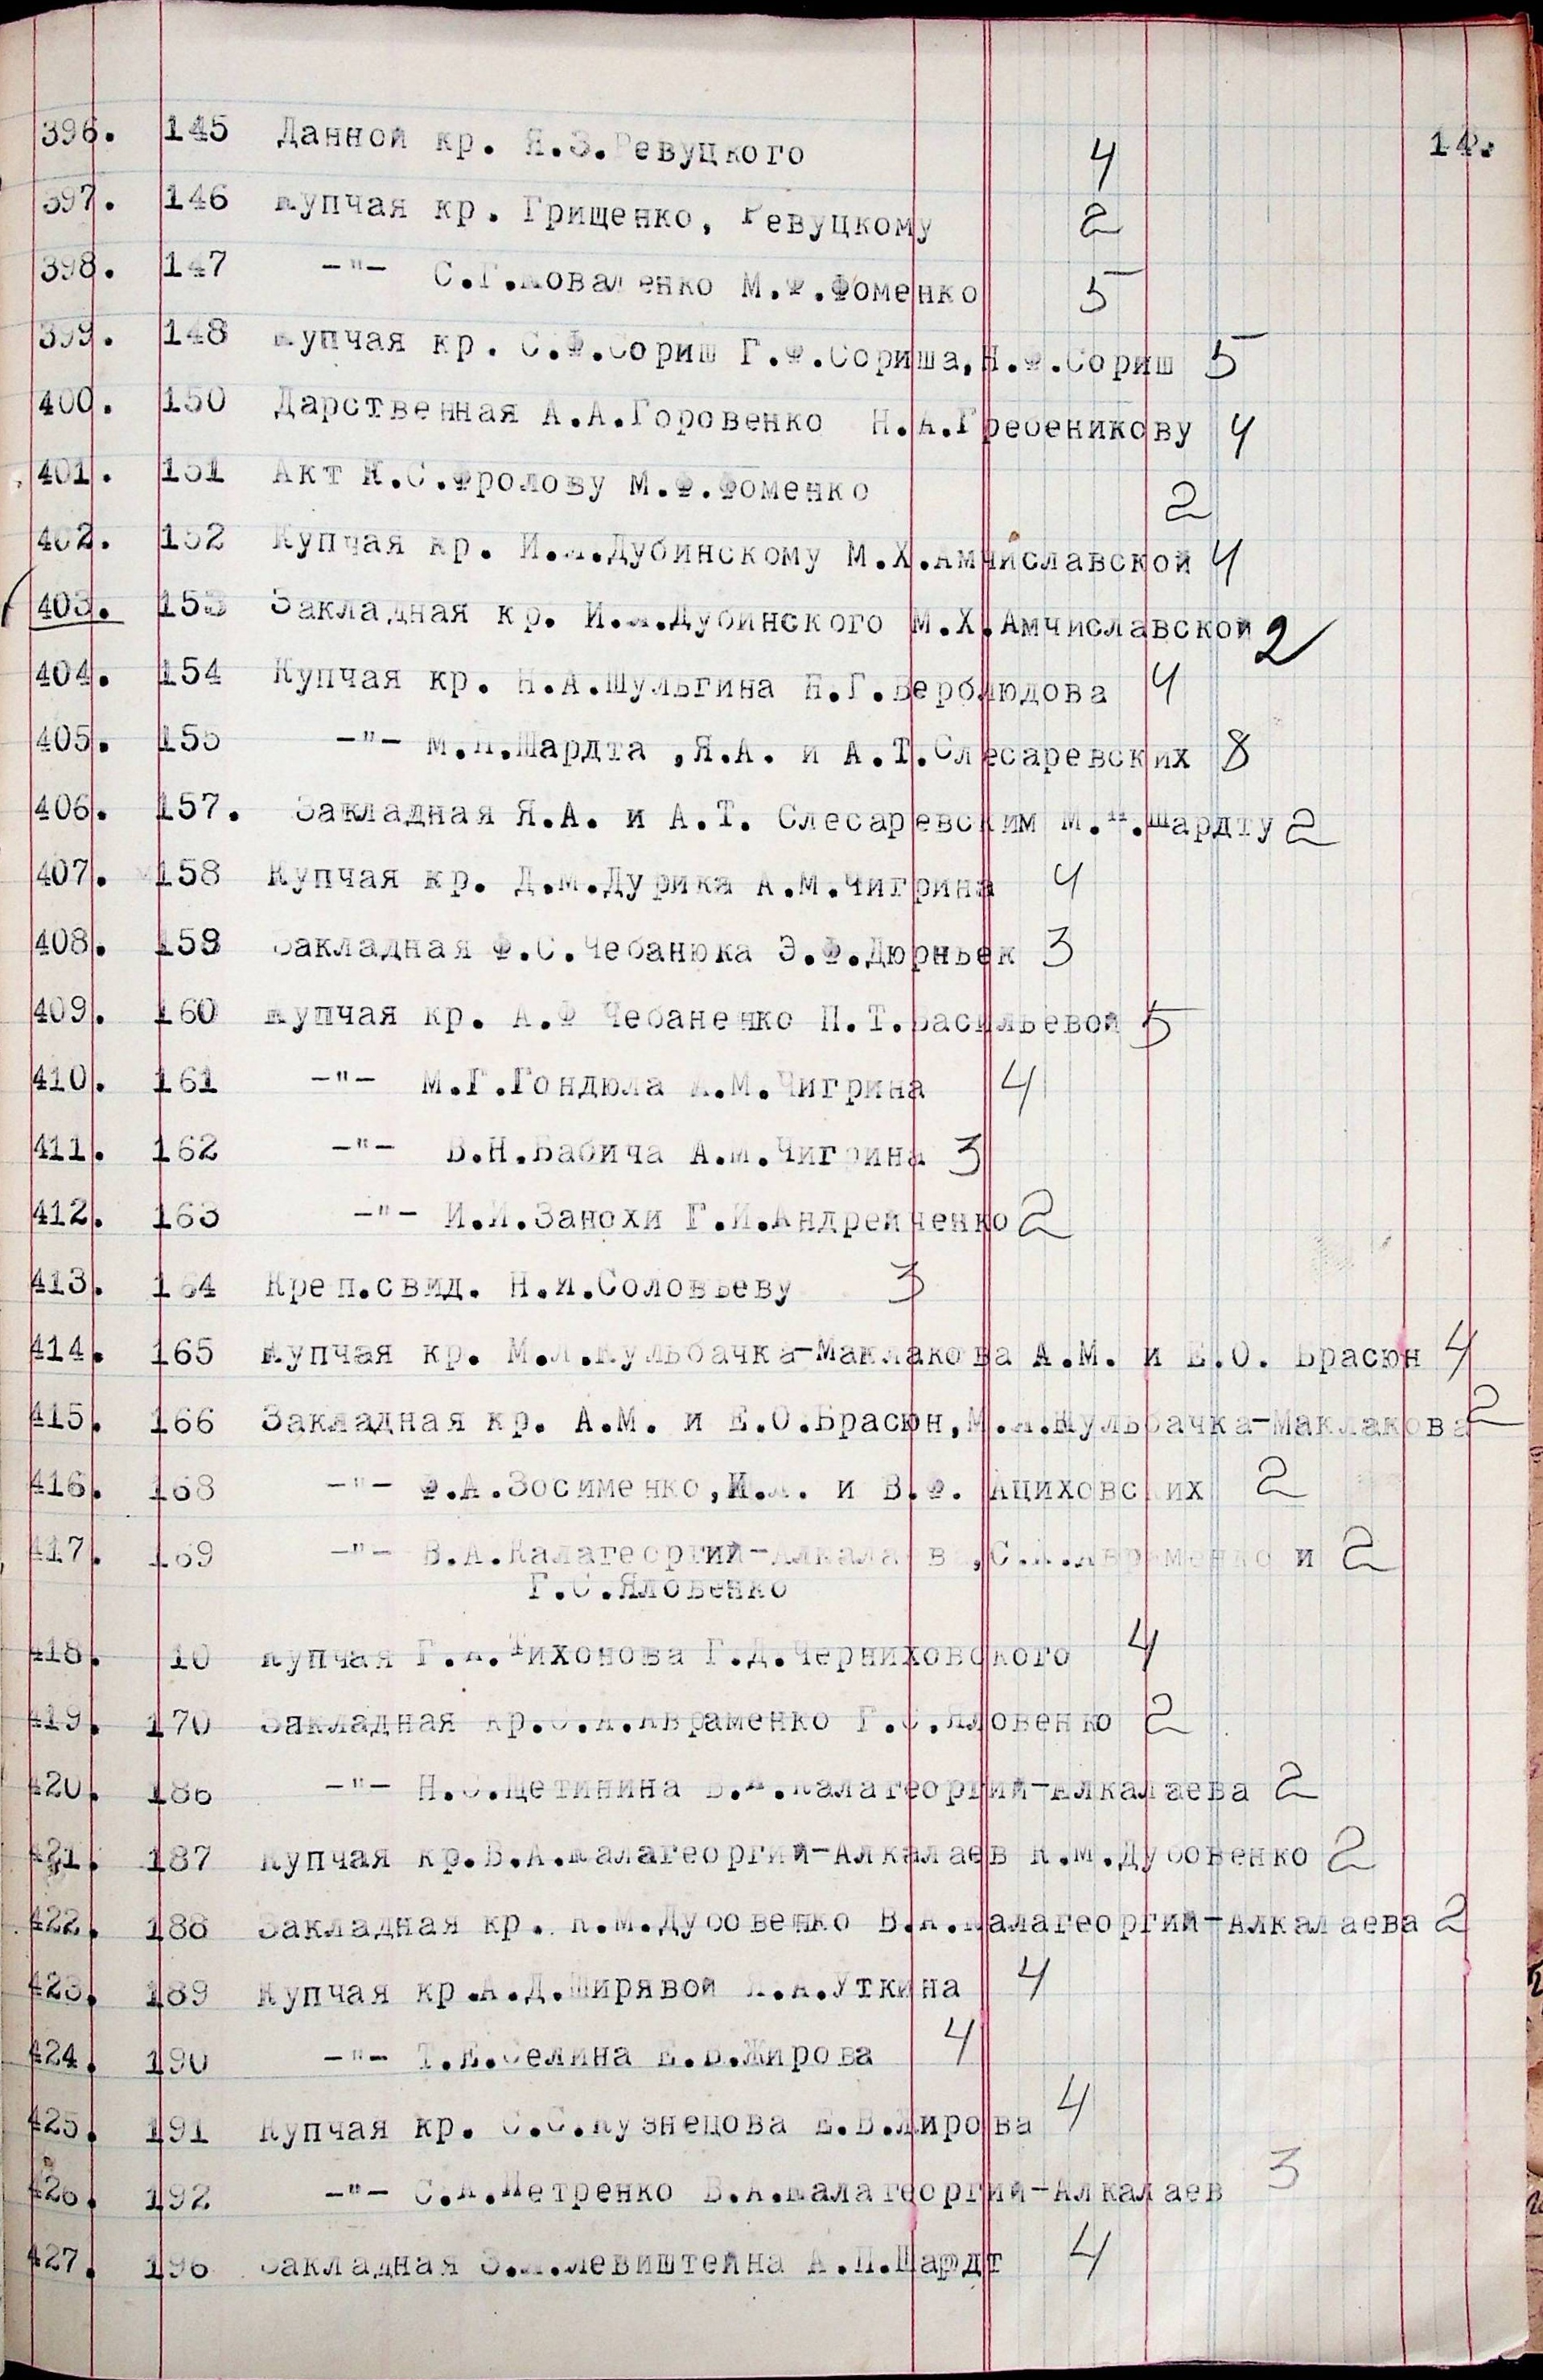 14.
396. 145 Данной кр. Я.З.Ревуцкого 4
397. 146 Купчая кр. Грищенко, Ревуцкому 2
398. 147 -"- С.Г.Коваленко М.Ф.Фоменко 5
399. 148 Купчая кр. С.Ф.Сориш Г.Ф.Сориша,Н.Ф.Сориш 5
400. 150 Дарственная А.А.Горовенко Н.А.Гребеникову 4
401. 151 Акт К.С.Фролову М.Ф.Фоменко 2
402. 152 Купчая кр. Дубинскому М.Х.Амчиславской 4
403. 153 Закладная кр. Дубинского М.Х.Амчиславской 2
404. 154 Купчая кр. Н.А.Шульгина Н.Г.Верблюдова 4
405. 155 -"- Шардта ,Я.А. и А.Т.Слесаревских 8
406. 157. Закладная Я.А. и А.Т. Слесаревским Шардту 2
407. 158 Купчая кр. Д.М.Дурика А.М.Чигрина 4
408. 159 Закладная Ф.С.Чебанюка Э.Ф.Дюрньек 3
409. 160 Купчая кр. А.Ф Чебаненко П.Т.Васильевой 5
410. 161 -"- М.Г.Гондюла А.М.Чигрина 4
411. 162 -"- В.Н.Бабича А.М.Чигрина 3
412. 163 -"- И.И.Занохи Г.И.Андрейченко 2
413. 164 Креп.свид. Н.И.Соловьеву 3
414. 165 Купчая кр. Кульбачка-Маклакова А.М. и Е.О. Брасюн 4
415. 166 Закладная кр. А.М. и Е.О.Брасюн, Кульбачка-Маклакова 2
416. 168 -"- Ф.А.Зосименко, и В.Ф. Ациховских 2
417. 169 -"- В.А.Калагеоргий-Алкалаева, Авраменко и 2
Г.С.Яловенко
418. 10 Купчая Тихонова Г.Д.Черниховского 4
419. 170 Закладная кр. Авраменко Г.С.Яловенко 2
420. 186 -"- Н.С.Щетинина В.А.Калагеоргий-Алкалаева 2
421. 187 Купчая кр.В.А.Калагеоргий-Алкалаев К.М.Дубовенко 2
422. 188 Закладная кр. К.М.Дубовенко В.А.Калагеоргий-Алкалаева 2
423. 189 Купчая кр.А.Д.Ширявой Уткина 4
424. 190 -"- Т.Е.Селина Е.В.Жирова 4
425. 191 Купчая кр. С.С.Кузнецова Е.В.Жирова 4
426. 192 -"- Петренко В.А.Калагеоргий-Алкалаев 3
427. 196 Закладная Левиштейна А.П.Шардт 4